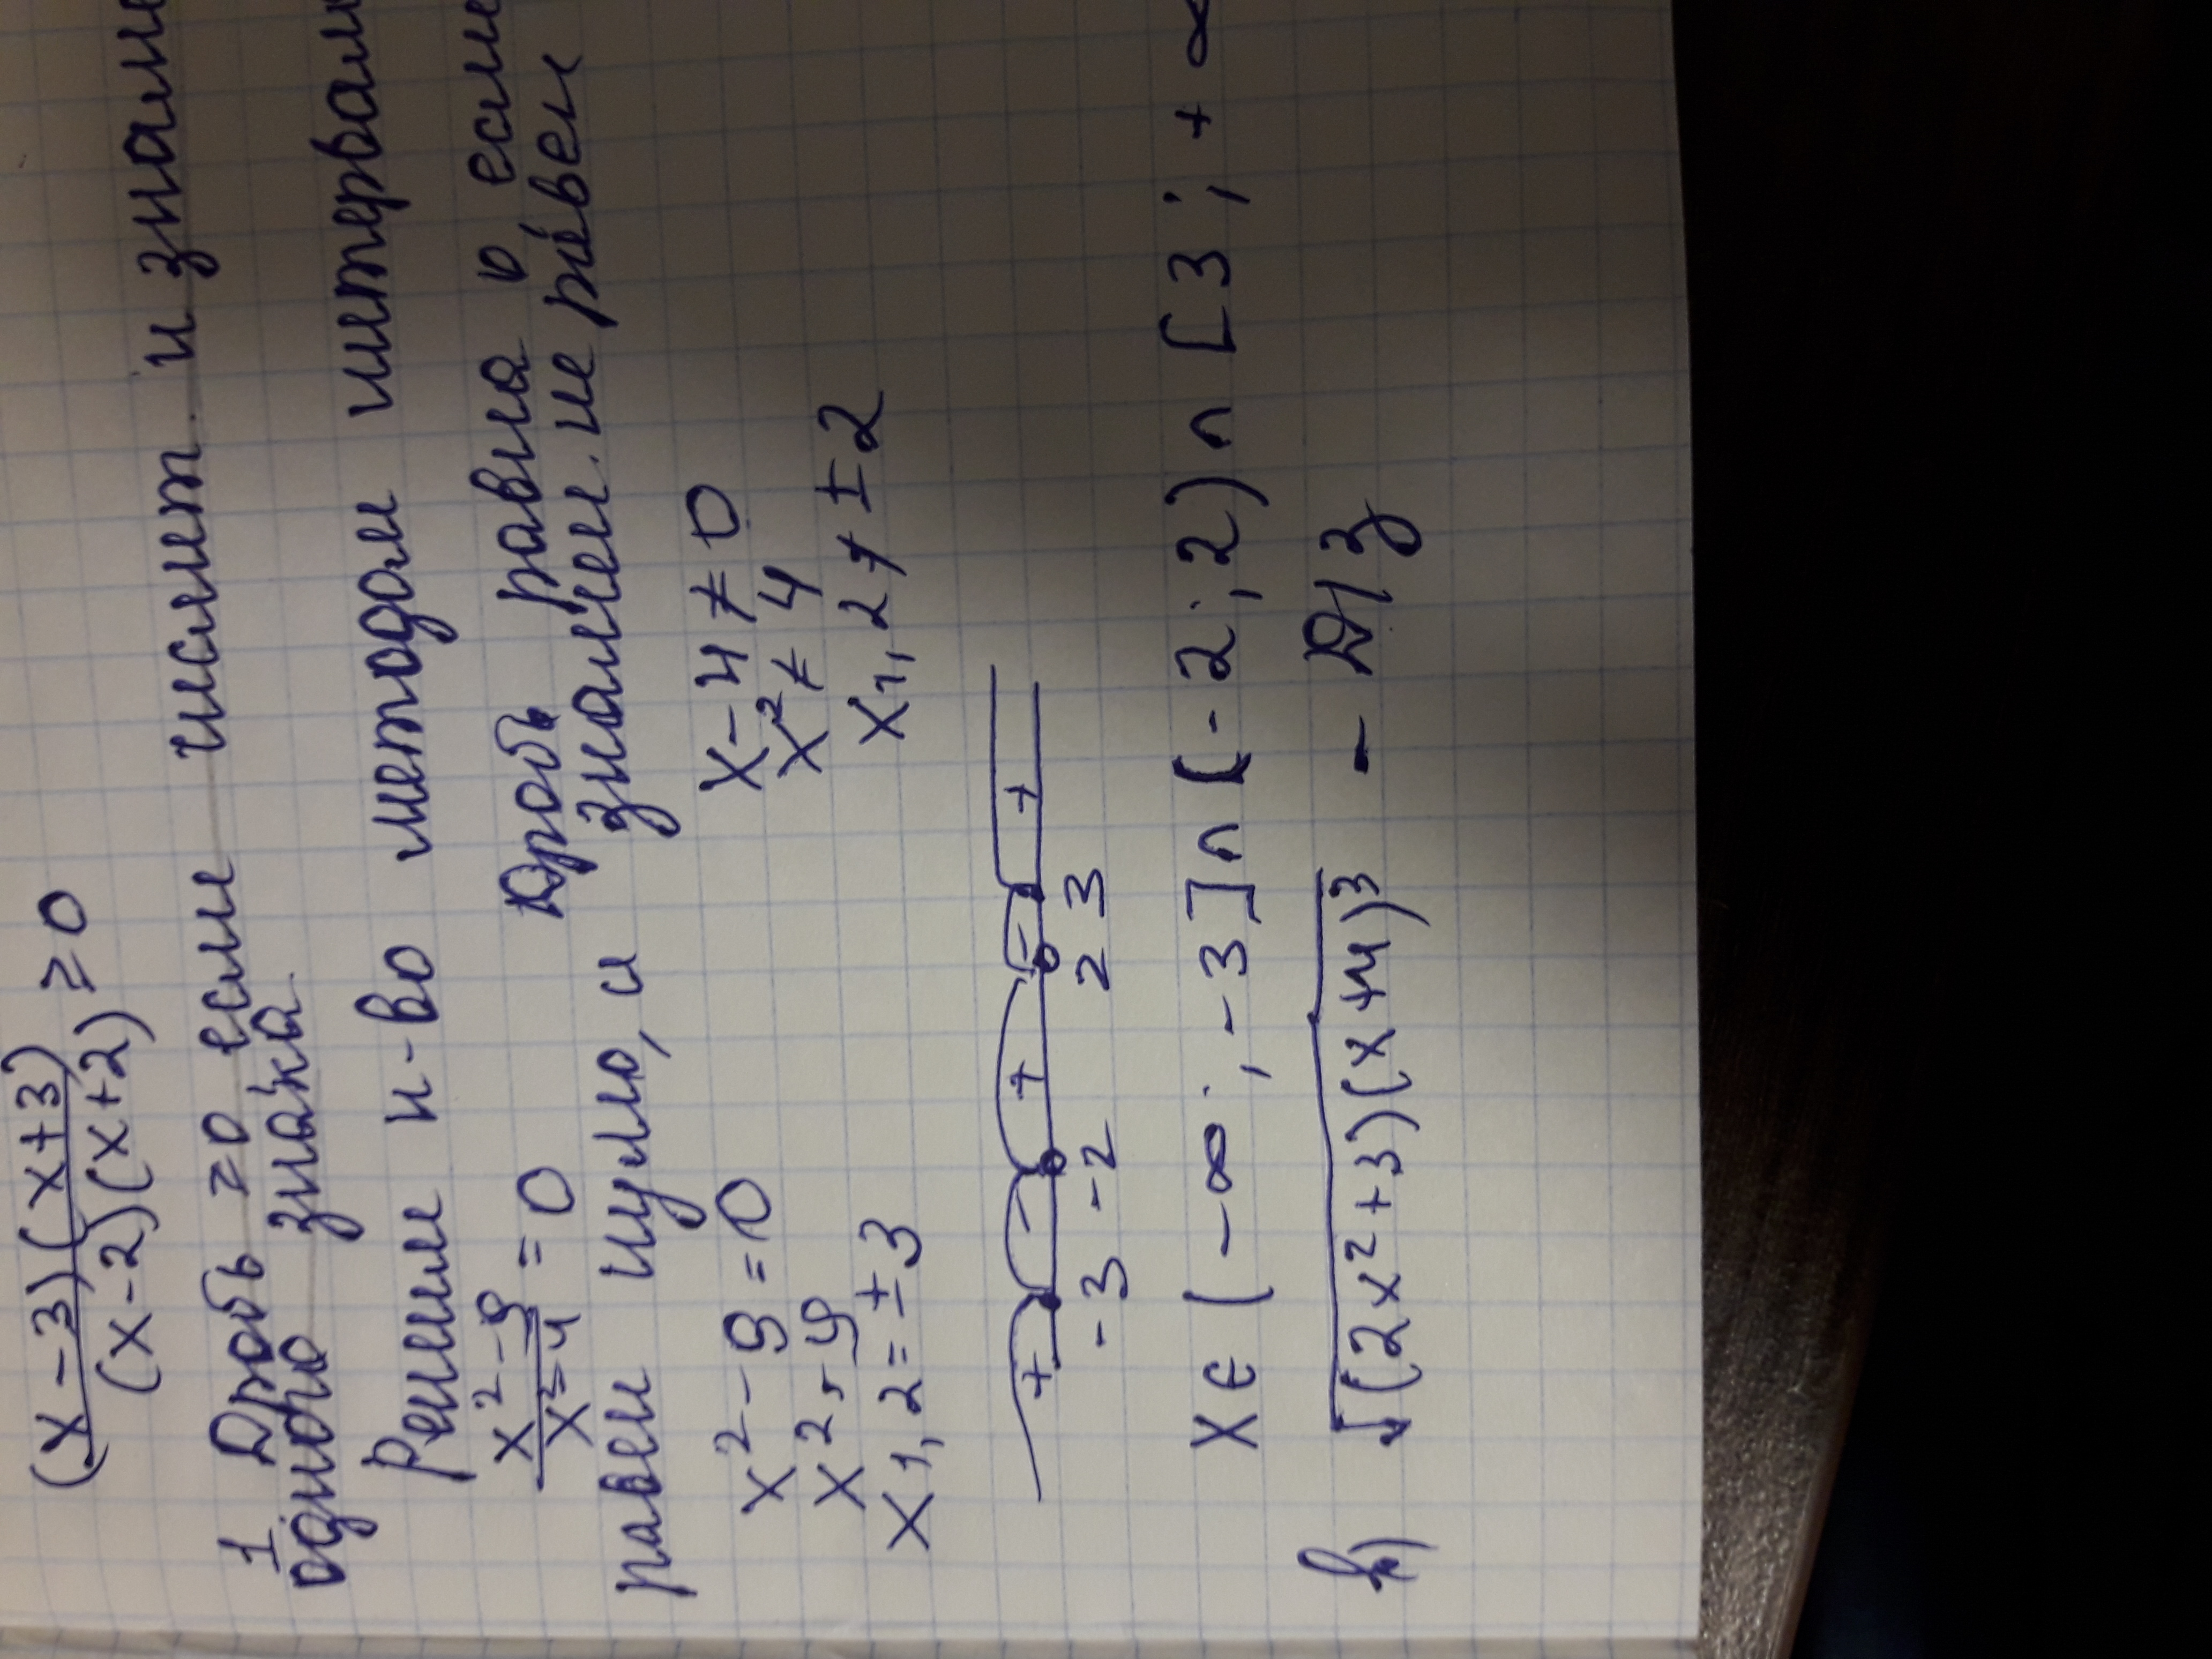 (x-3)(x+3)
(x-2)(x+2) ≥ 0
1 Дробь ≥0 если числит. и знамен
одного знака.
Решим н-во методом интервал
x²-9
x²-4 = 0 Дробь равна 0 если
равен нулю, и знамен. не равен
x²-9=0 x-4≠0
x²=9 x²≠4
x1,2=±3 x1,2≠±2
+ - + - +
-3 -2 2 3
x∈(-∞;-3]∩(-2;2)∩[3;+∞
√(2x²+3)(x+4)³ - Д/З